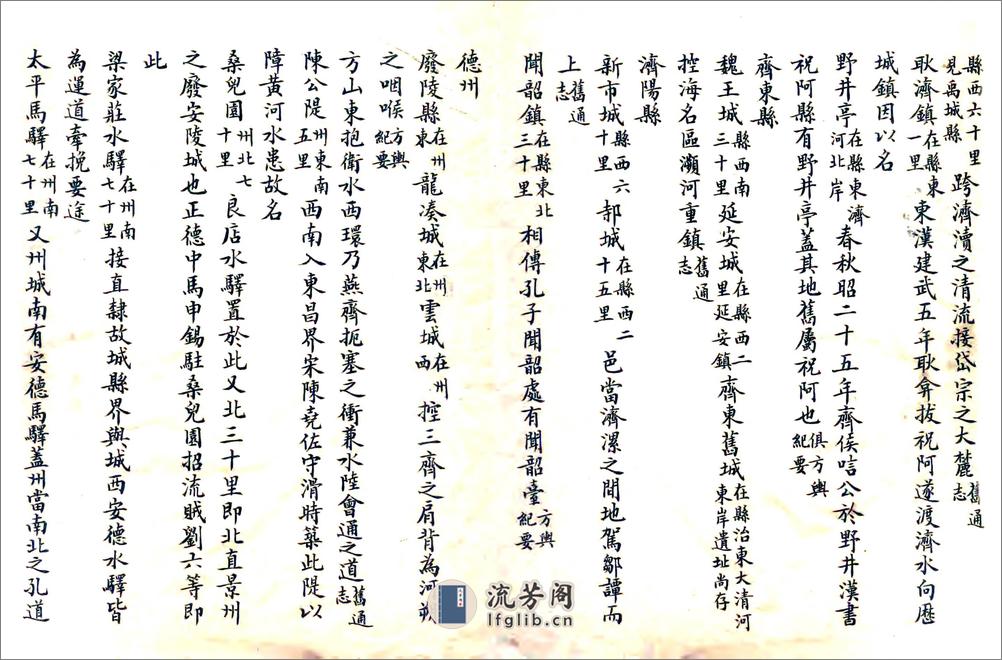 縣西六十里見禹城縣跨濟瀆之清流接岱宗之大麓舊通志
耿濟鎮在縣東一里東漢建武五年耿弇拔祝阿遂渡濟水向歷
城鎮因以名
野井亭在縣東濟河北岸春秋昭二十五年齊侯唁公於野井漢書
祝阿縣有野井亭蓋其地舊屬祝阿也俱方輿紀要
齊東縣
魏王城縣西南三十里延安城在縣西二里延安鎮齊東舊城在縣治東大清河東岸遺址尚存
控海名區瀕河重鎮舊通志
濟陽縣
新市城縣西六十里郝城在縣西二十五里邑當濟漯之間地駕鄒譚而
上舊通志
聞韶鎮在縣東北三十里相傳孔子聞韶處有聞韶臺方輿紀要
德州
廢陵縣在州東龍凑城在州東北雲城在州西控三齊之肩背為河朔
之咽喉方輿紀要
方山東抱衛水西環乃燕齊扼塞之衝兼水陸會通之道舊通志
陳公隄州東南五里西南入東昌界宋陳堯佐守滑時築此隄以
障黃河水患故名
桑兒園州北七十里良店水驛置於此又北三十里即北直景州
之廢安陵城也正德中馬申錫駐桑兒園招流賊劉六等即
此
梁家莊水驛在州南七十里接直隸故城縣界與城西安德水驛皆
為運道牽挽要途
太平馬驛在州南七十里又州城南有安德馬驛蓋州當南北之孔道
流芳阁
lfglib.cn